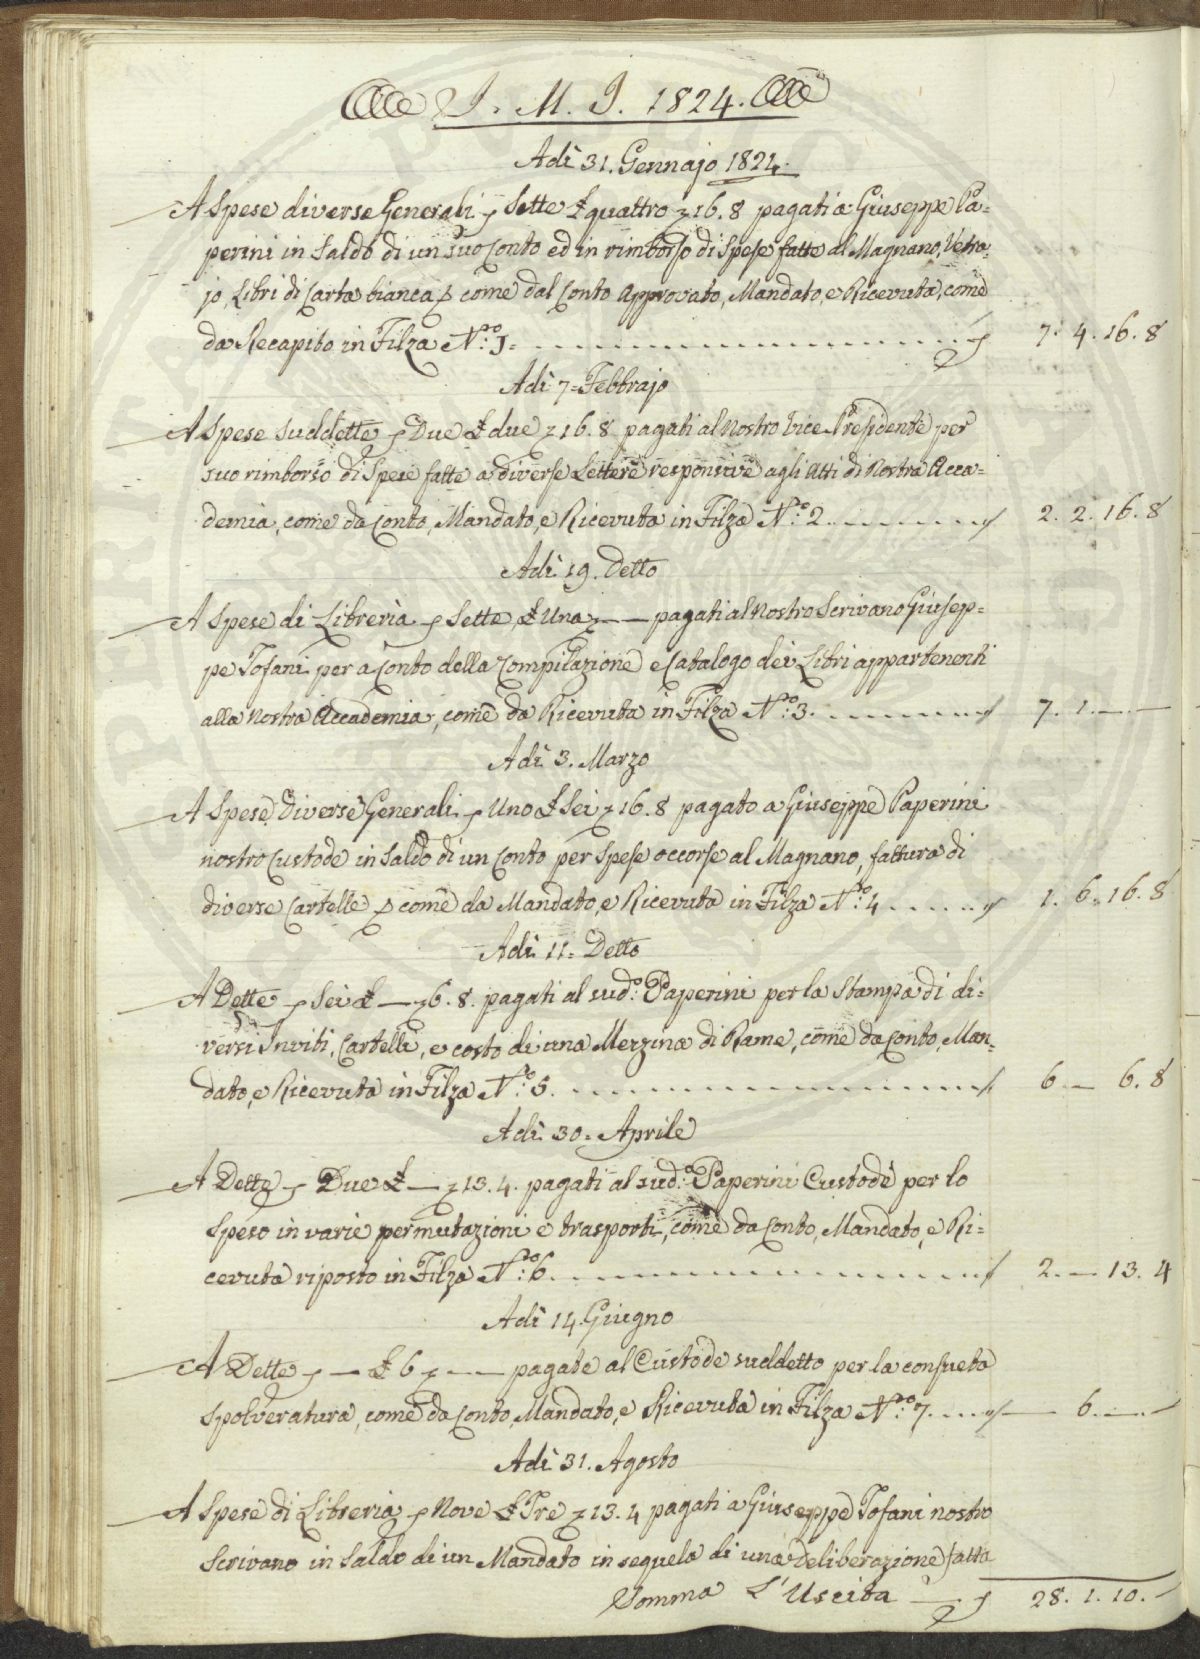 J. M. J. 1824.
Adì 31. Gennajo 1824.
A Spese diverse Generali Sette £ quattro 16. 8 pagati a Giuseppe Pa-
perini in Saldo di un suo Conto ed in rimborso di Spese fatte al Magnano, Vetra-
jo, Libri di Carta bianca, come dal Conto Approvato, Mandato, e Ricevuta, come
da Recapito in Filza N.º 1= 7. 4. 16. 8
Adì 7= Febbrajo
A Spese suddette Due £ due 16. 8 pagati al Nostro Vice-Presidente per
suo rimborso di Spese fatte a diverse Lettere responsive agli Atti di Nostra Acca-
demia, come da Conto, Mandato, e Ricevuta in Filza N.º 2 2. 2. 16. 8
Adì 19. Detto
A Spese di Libreria Sette £ Una — — pagati al Nostro Scrivano Giusep-
pe Tofani per a Conto della Compilazione e Catalogo dei Libri appartenenti
alla Nostra Accademia, come da Ricevuta in Filza N.º 3. 7. 1. — —
Adì 3. Marzo
A Spese Diverse Generali Uno £ Sei 16. 8 pagato a Giuseppe Paperini
nostro Custode in Saldo di un Conto per Spese occorse al Magnano, fattura di
diverse Cartelle come da Mandato, e Ricevuta in Filza N.º 4 1. 6. 16. 8
Adì 11= Detto
A Dette Sei £ — 6. 8. pagati al sud.º Paperini per la Stampa di di-
versi Inviti, Cartelli, e costo di una Mezzina di Rame, come da Conto, Man-
dato, e Ricevuta in Filza N.º 5. 6 — 6. 8
Adì 30= Aprile
A Dette Due £ — 13. 4. pagati al sud.º Paperini Custode per lo
speso in varie permutazioni e trasporti, come da Conto, Mandato, e Ri-
cevuta riposto in Filza N.º 6. 2. — 13. 4
Adì 14. Giugno
A Dette — £ 6 — — pagate al Custode suddetto per la consueta
Spolveratura, come da Conto, Mandato, e Ricevuta in Filza N.º 7. — 6. — —
Adì 31. Agosto
A Spese di Libreria Nove £ Tre 13. 4 pagati a Giuseppe Tofani nostro
Scrivano in Saldo di un Mandato in sequela di una Deliberazione fatta
Somma L'Uscita — 28. 1. 10. —